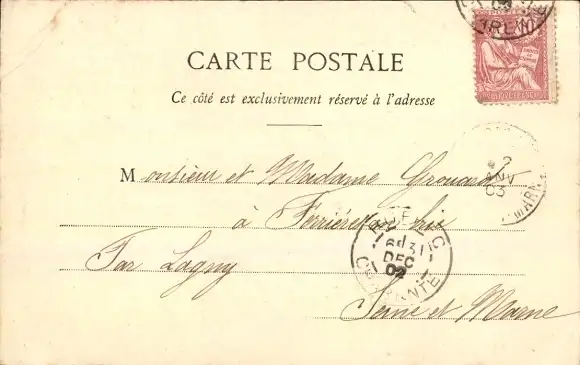 CARTE POSTALE
Ce côté est exclusivement réservé à l'adresse
Monsieur et Madame Grouard
à Ferrières en Brie
Par Lagny
Seine et Marne
RUFFEC
6E 31
DEC
02
CHARENTE
2
JANV
03
MARNE
10